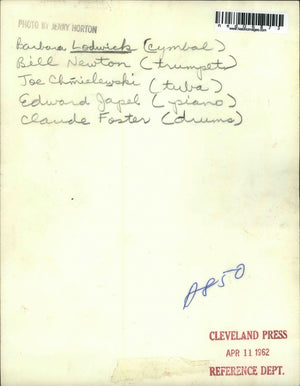 PHOTO BY JERRY HORTON
Barbara Lodwick (cymbal)
Bill Newton (trumpet)
Joe Chmielewski (tuba)
Edward Japel (piano)
Claude Foster (drums)
A850
CLEVELAND PRESS
APR 11 1962
REFERENCE DEPT.